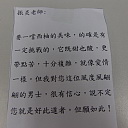 張是老師:
要一嚐西柚的真味,的確是有
一定挑戰的,它既耐也酸,更
帶點苦,十分複雜,就像愛情
一樣,但我對您這位風度風翩
翩的男士,很有信心,說不定
您就是好此道者,但願如此!